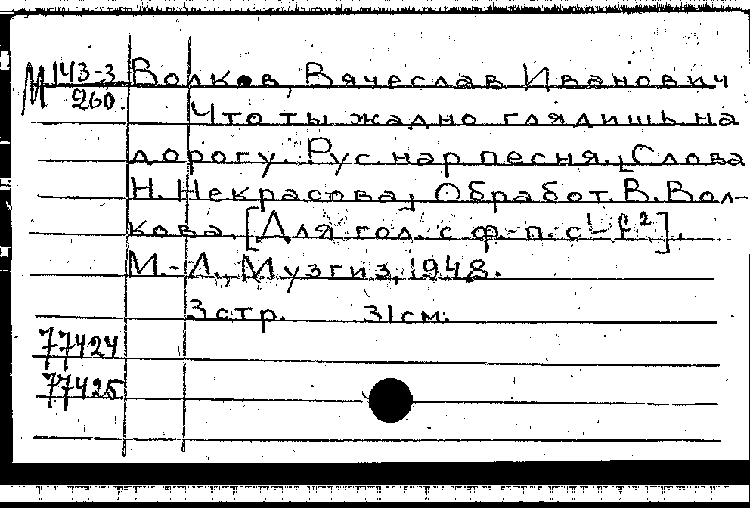 М 143-3 Волков, Вячеслав Иванович
260. Что ты жадно глядишь на
дорогу. Рус. нар. песня. [Слова
Н. Некрасова] Обработ. В. Вол-
кова. [Для гол. с ф-п. с¹-f²].
М.-Л., Музгиз, 1948.
3 стр. 31 см.
77424
77425